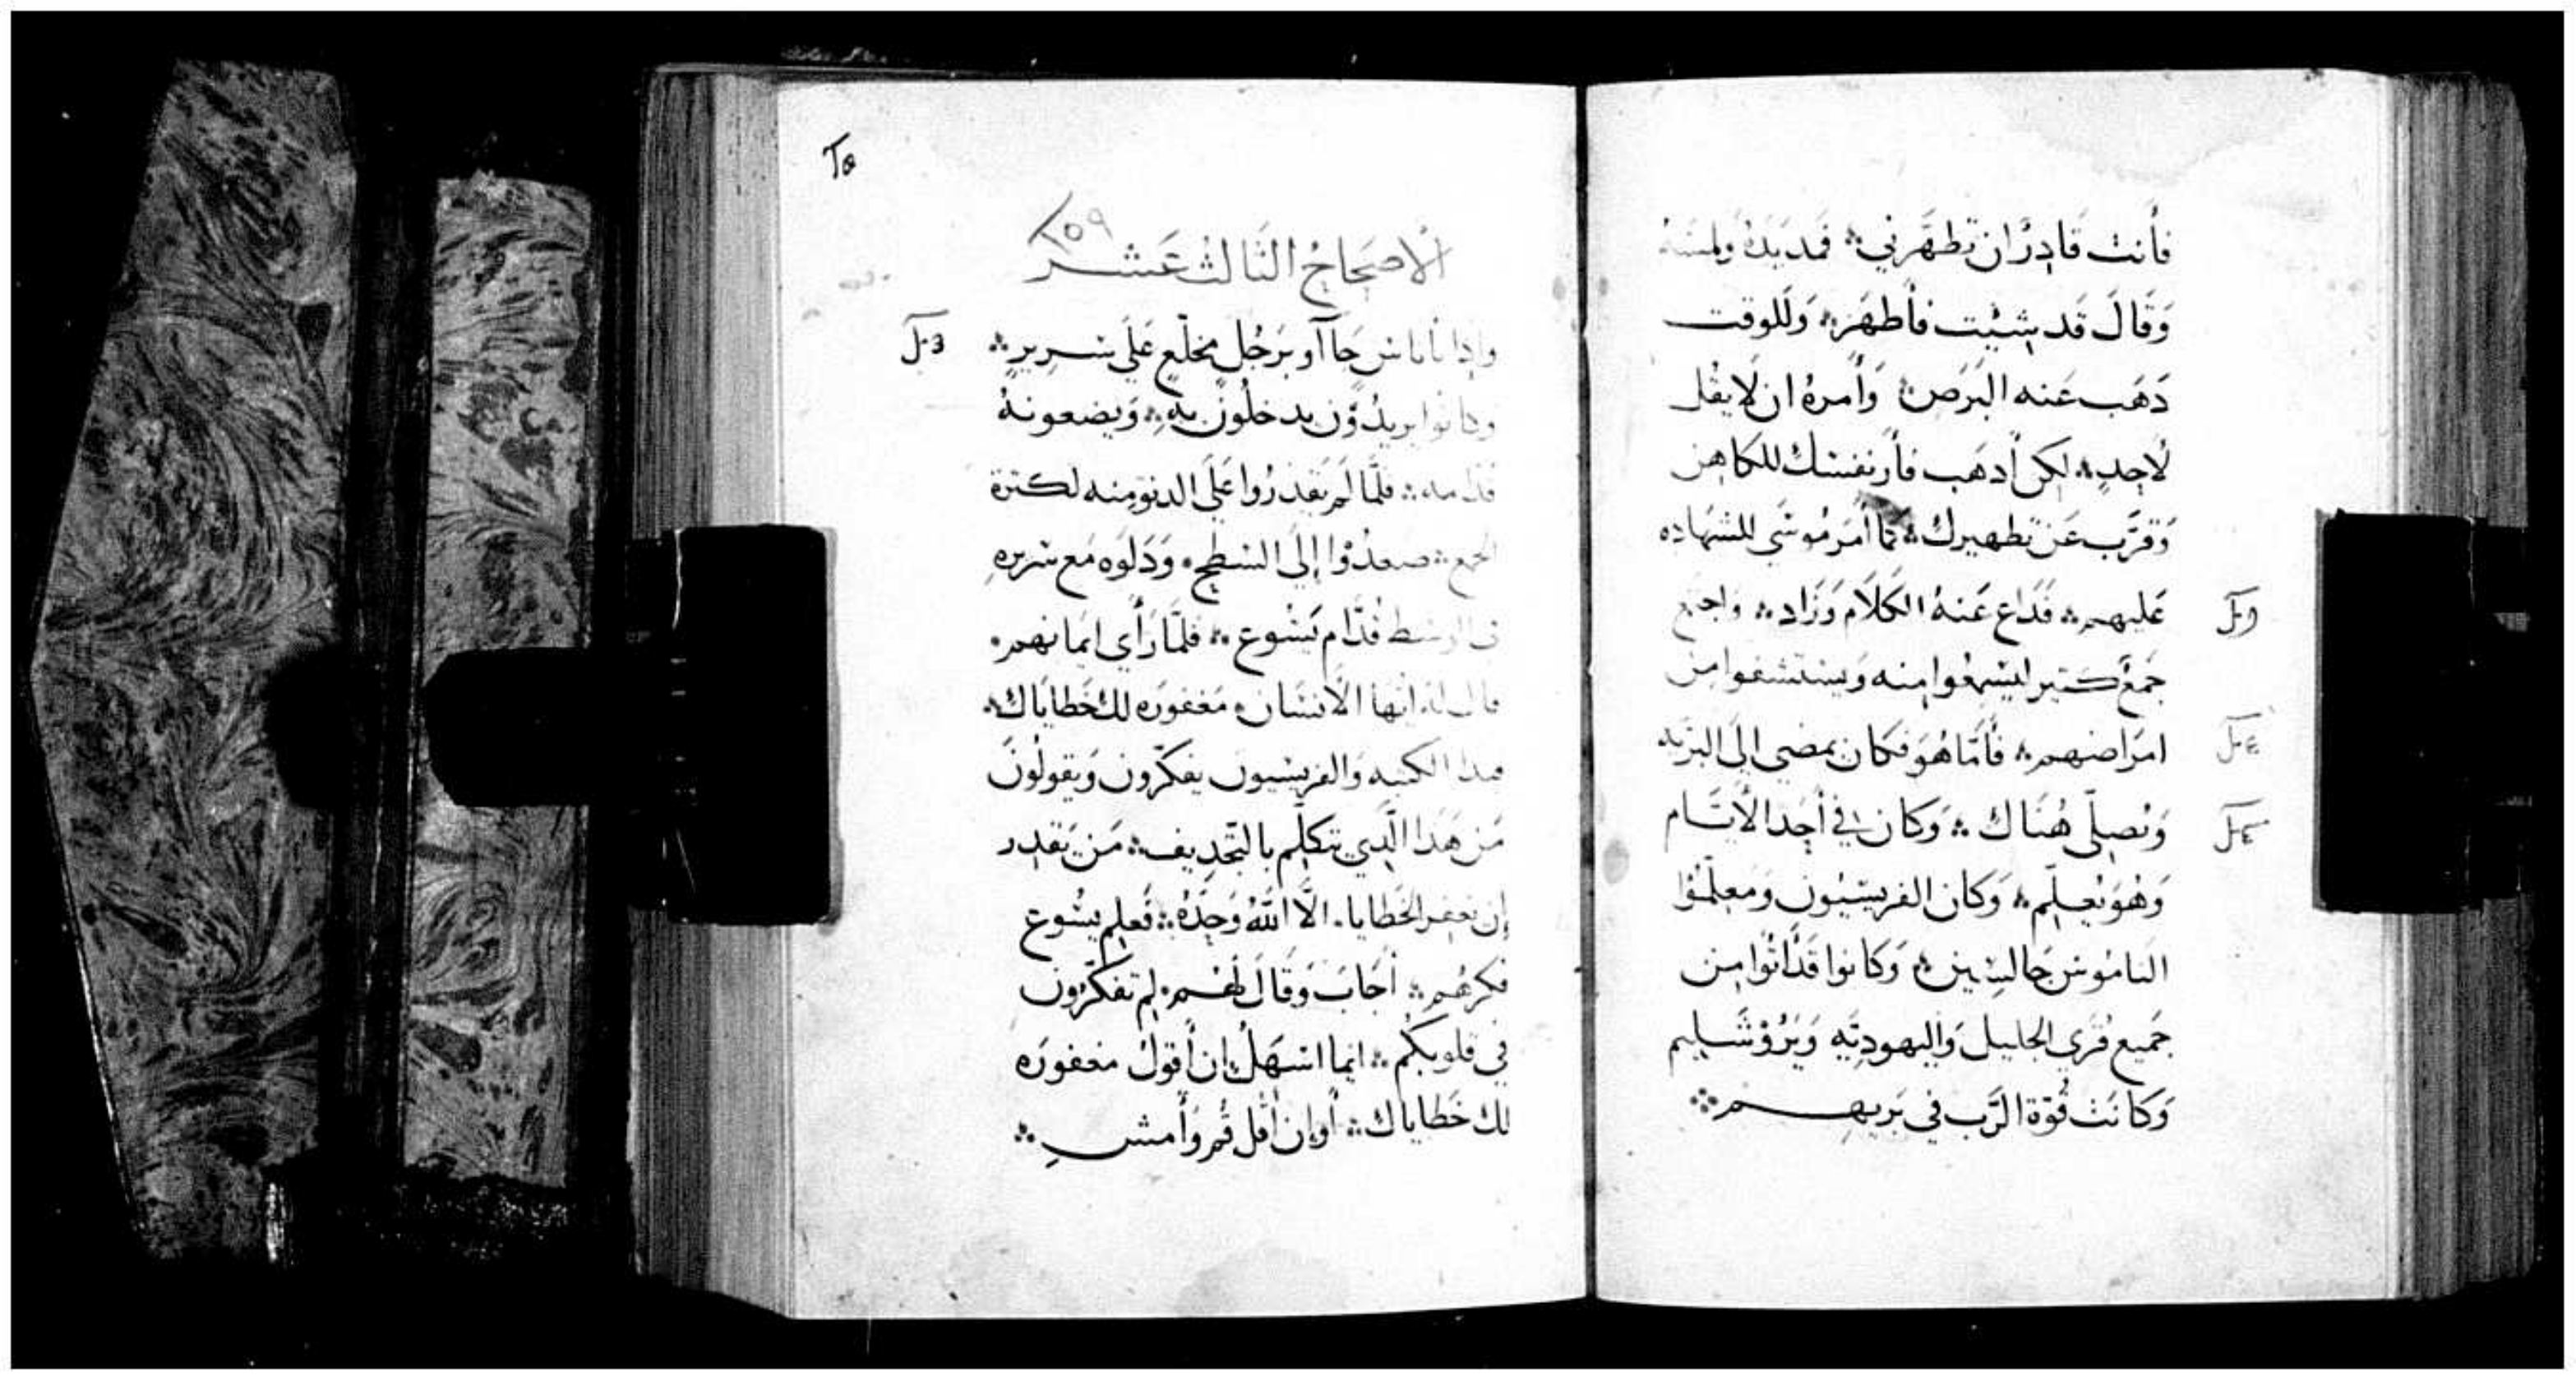 فأنت قادرٌ ان تطهّرني ۞ فمد يدهُ ولمسهُ
وَقالَ قَد شيْت فأطهَر ۞ وَللوقت
دَهَب عَنه البَرص ۞ وَأمرهُ ان لا يقُل
لأحدٍ ۞ لكن أدهَب فأرِ نفسَك للكاهن
وَقرَّب عَن تطهيرك ۞ كمَا أمَر مُوسَى للشهَاده
عَليهم ۞ فَدَاع عَنهُ الكَلاَم وَزَاد ۞ واجتمع
جَمعٌ كتير ليسمَعُوا منه وَيستشفوا من
امرَاضهم ۞ فأمّا هُوَ فكان يمضي الي البرّيه
وَيُصلّى هُنَاك ۞ وَكان في أحَد الأيّام
وَهُوَ يُعلّم ۞ وَكان الفريسيُون وَمعلّمُوا
النامُوس جَالسِين ۞ وَكانوا قَد أتُوا مِن
جَميع قُرَى الجليل وَاليهوديّه وَيَرُوشَليم
وَكانَت قُوّة الرَّب في بَريهم ۞
٢٥
١٥٩
الأصحَاحُ الثَالث عَشر
وإدا أناس جَاآو برَجُل مخلّع عَلَى سَرير ۞
وكانوا يريدُوُن يدخلُون به ۞ وَيضعونهُ
قدامه ۞ فلمَّا لَم يَقدرُوا عَلَى الدنوّ منه لكترة
الجمع ۞ صعدُوْا إلَى السَطح ۞ وَدَلوَه مَع سَريره
في الوسط قُدَّام يَسُوع ۞ فلمَّا رَأي ايمانهم ۞
قال له ايّها الأنسَان ۞ مَغفورَه لك خَطايَاك ۞
فبدا الكتبه وَالفريسيون يفكّرون وَيقولُونَ
مَن هَدا الَّدي يتكلّم بالتّجديف ۞ مَن يَقدر
إن يغفر الخَطايا ۞ الَّا اللهُ وَحدَهُ ۞ فَعلم يسُوع
فكرهُم ۞ أجَابَ وَقالَ لَهُم ۞ لم تفكّرون
في قلوبكُم ۞ ايما اسهَلُ إن أقول مغفورَه
لك خَطاياك ۞ أوإن أقل قُم وَأمشِ ۞